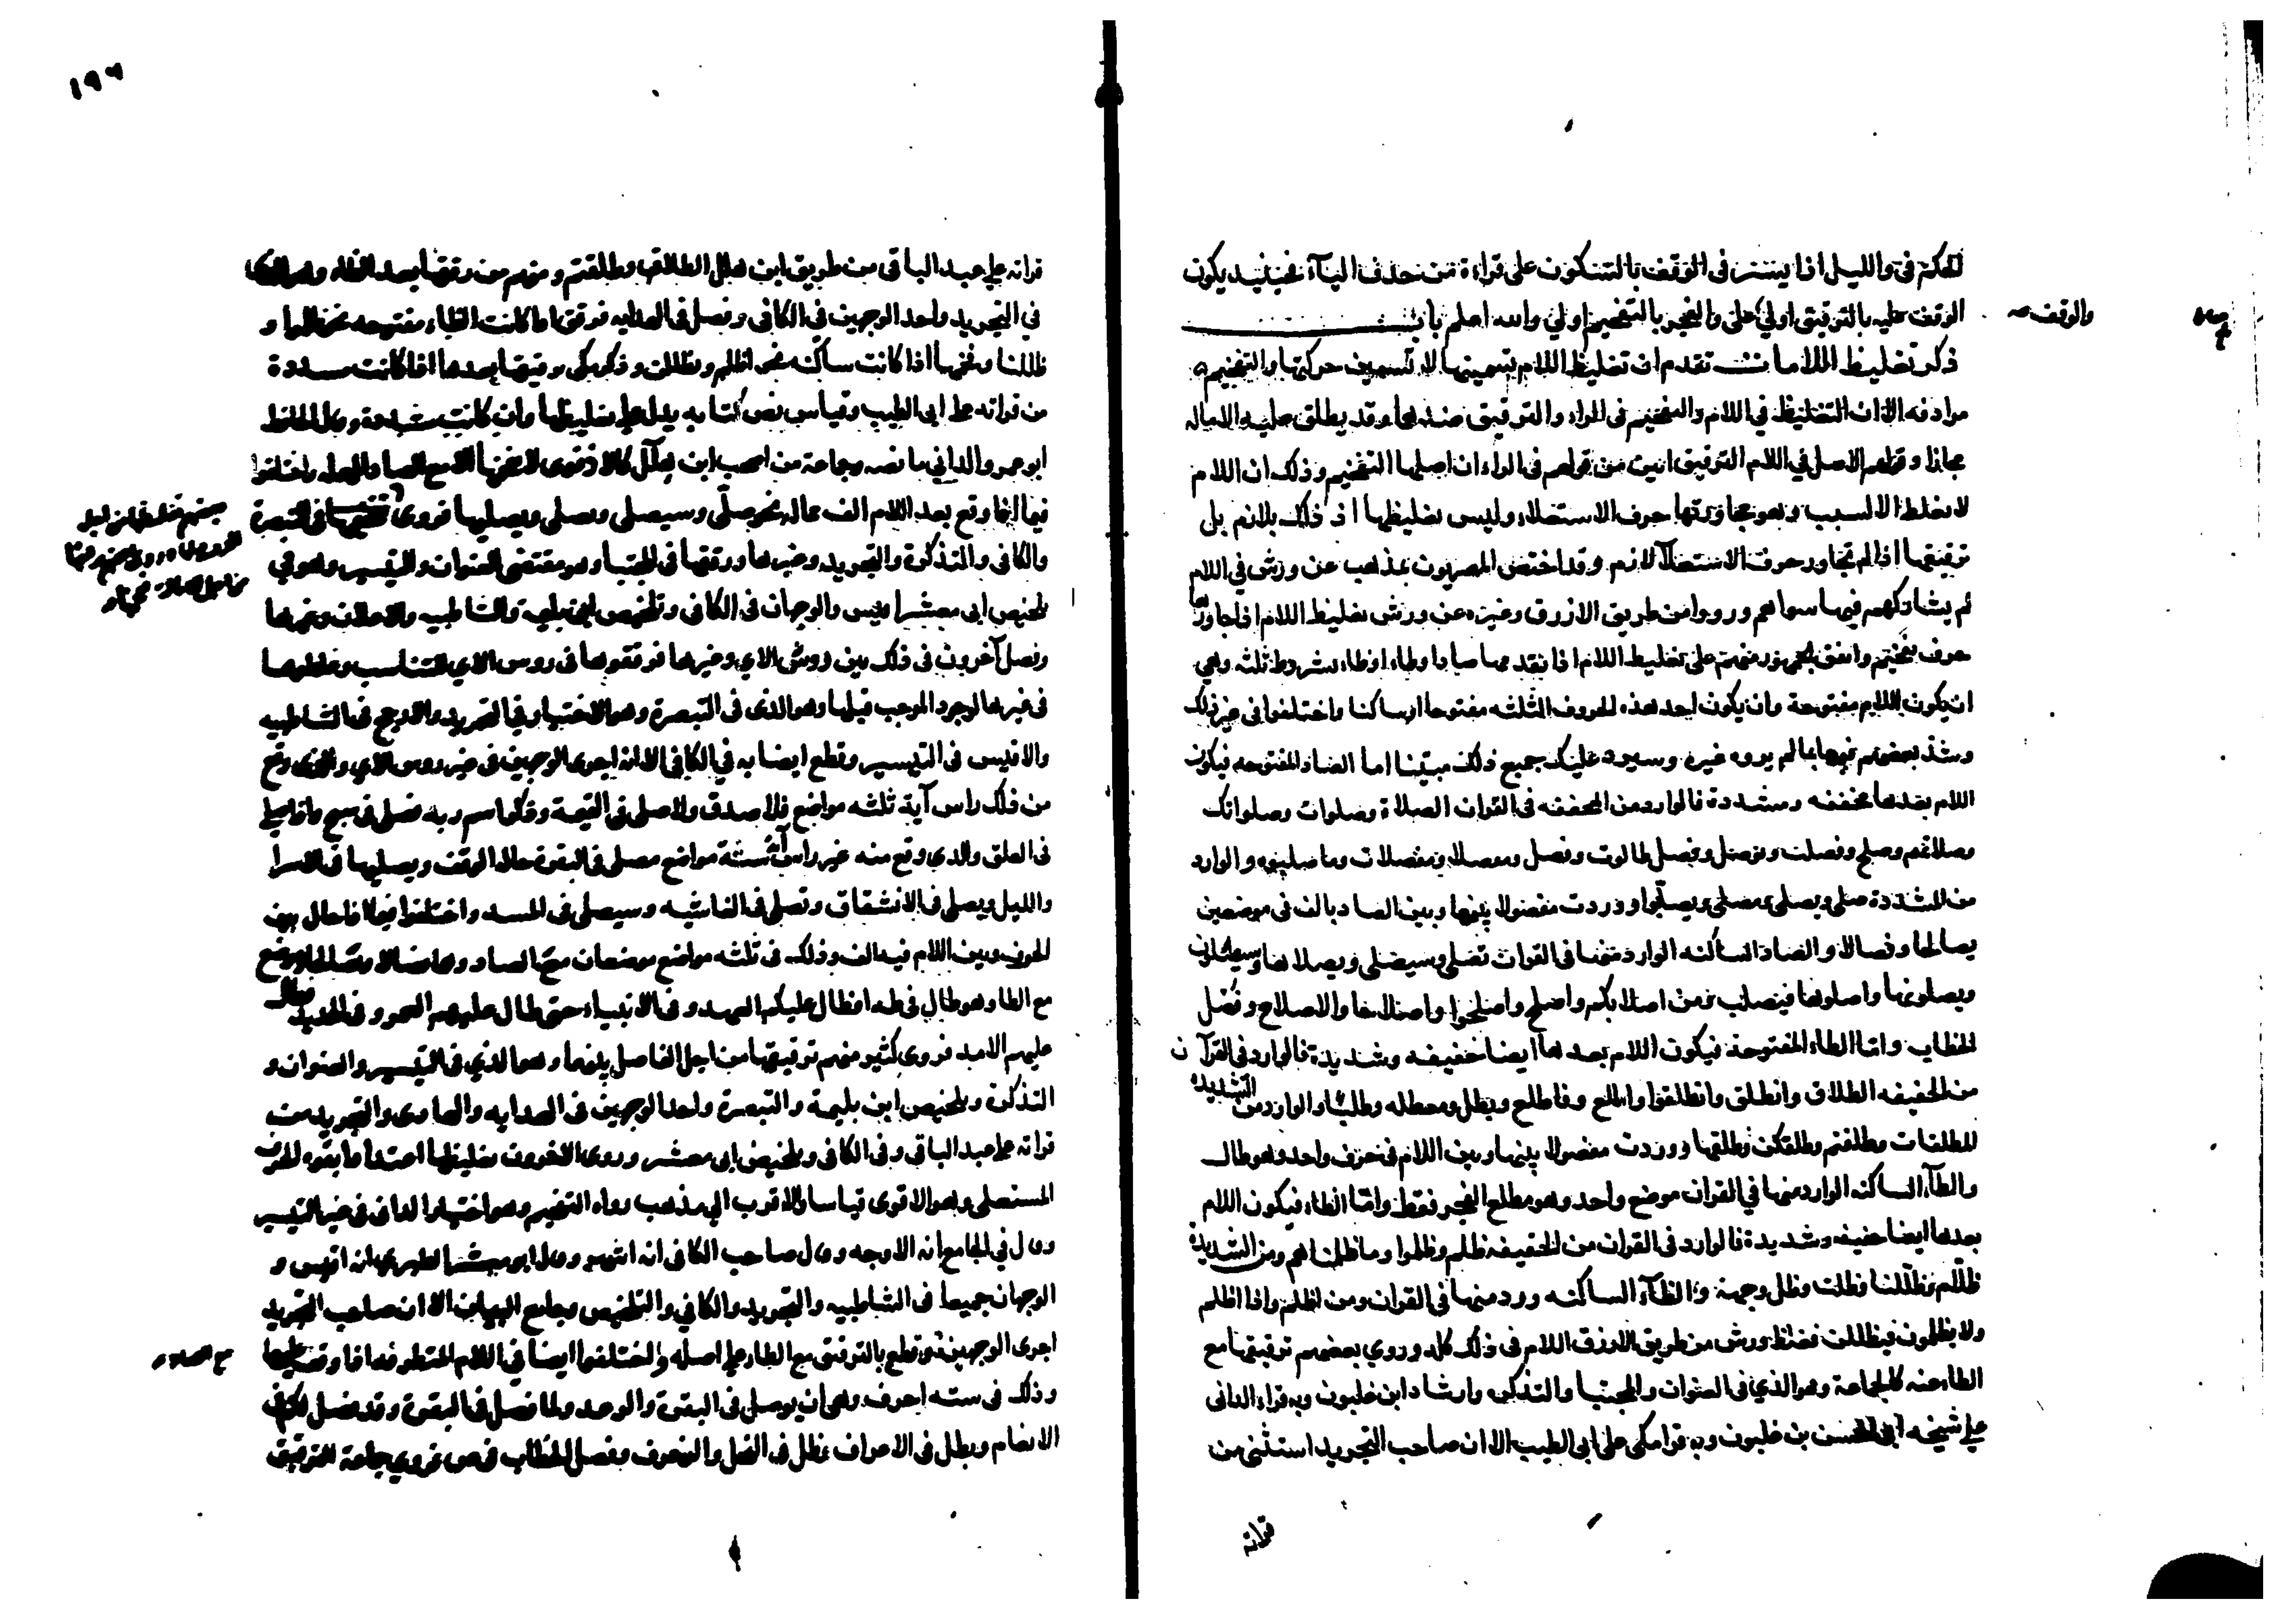 الحكم في والليل اذا يسر في الوقف بالسكون على قراءة من حذف الياء فحينئذ يكون
الوقف عليه بالترقيق اولى
والوقف
على والفجر بالتفخيم اولى والله اعلم باب
ذكر تغليظ اللامات تقدم ان تغليظ اللام تسمينها لا تسمين حركتها والتفخيم
مرادفه الا ان التغليظ في اللام والتفخيم في الراء والترقيق ضدهما وقد يطلق عليه الاماله
مجازا وقولهم الاصل في اللام الترقيق ابين من قولهم في الراء ان اصلها التفخيم وذلك ان اللام
لا تغلظ الا لسبب وهو مجاورتها حرف الاستعلاء وليس تغليظها اذ ذاك بلازم بل
ترقيقها اذا لم تجاور حرف الاستعلا لازم وقد اختص المصريون بمذهب عن ورش في اللام
لم يشاركهم فيها سواهم ورووا من طريق الازرق وغيره عن ورش تغليظ اللام اذا جاورها
حرف تفخيم واتفق الجمهور منهم على تغليظ اللام اذا تقدمها صاد او طاء او ظاء بشروط ثلثه وهي
ان يكون اللام مفتوحة وان يكون احد هذه الحروف الثلثه مفتوحا او ساكنا واختلفوا في غير ذلك
وشذ بعضهم فيها بما لم يروه غيره وسيرد عليك جميع ذلك مبينا اما الصاد المفتوحه فيكون
اللام بعدها مخففه ومشددة فالوارد من المخففه في القران الصلاة وصلوات وصلواتك
وصلاتهم وصلح وفصلت ويوصل وفصل طالوت وفصل ومفصلا ومفصلات وما صلبوه والوارد
من المشددة صلى ويصلى ومصلى ويصلبوا ووردت مفصولا بينها وبين الصاد بالف في موضعين
يصالحا وفصالا والصاد الساكنه الوارد منها في القران تصلى وسيصلى ويصلاها وسيصلون
ويصلونها واصلوها فيصلب ومن اصلابكم واصلح واصلحوا واصلاحا والاصلاح وفصل
الخطاب واما الطاء المفتوحة فيكون اللام بعدها ايضا خفيفه وشديدة فالوارد في القرآن
من الخفيفه الطلاق وانطلق وانطلقوا واطلع وفاطلع وبطل ومعطله وطلبا والوارد من الشديدة
المطلقات وطلقتم وطلقكن وطلقها ووردت مفصولا بينها وبين اللام في حرف واحد وهو طال
والطاء الساكنه الوارد منها في القران موضع واحد وهو مطلع الفجر فقط واما الظاء فيكون اللام
بعدها ايضا خفيفه وشديدة فالوارد في القران من الخفيفه ظلم وظلموا وما ظلمناهم ومن الشديدة
ظلام وظللنا وظلت وظل وجهه والظاء الساكنه ورد منها في القران ومن اظلم واذا اظلم
ولا يظلمون فيظللن فغلظ ورش من طريق الازرق اللام في ذلك كله وروي بعضهم ترقيقها مع
الطاء عنه كالجماعة وهو الذي في العنوان والمجتبا والتذكره وارشاد ابن غلبون وبه قراء الدانى
على شيخه ابي الحسن بن غلبون وبه قرا مكى على ابي الطيب الا ان صاحب التجريد استثنى من
قراته
١٩٦
قراته على عبد الباقى من طريق ابن هلال الطلاق وطلقتم ومنهم من رققها بعد الظاء وهو الذي
في التجريد واحد الوجهين في الكافى وفصل في الهدايه فرقق اذا كانت الظاء مفتوحه نحو ظلموا و
ظللنا وفخمها اذا كانت ساكنه نحو اظلم ويظللن وذكر مكى ترقيقها بعدها اذا كانت مشددة
من قراته على ابى الطيب وقياس نص كتابه يدل على تغليظها وان كانت مشددة وقال الحافظ
ابو عمرو الداني ما نصه وجماعة من اصحاب ابن هلال كالادفوى لا يفخمها الا مع الصاد المهمله واختلفوا
فيما اذا وقع بعد اللام الف ممالة نحو صلى وسيصلى ومصلى ويصليها فروى
تفخيمها في التبصرة
والكافى والتذكرة والتجريد وغيرها ورققها في المجتبا وهو مقتضى العنوان والتيسير وهو في
تلخيص ابى معشر اقيس والوجهان في الكافى وتلخيص ابن بليمة والشاطبيه والاعلان وغيرها
وفصل آخرون في ذلك بين رووس الاي وغيرها فرققوها في روس الاي للتناسب وغلظوها
في غيرها لوجود الموجب قبلها وهو الذى في التبصرة وهو الاختيار في التجريد والارجح في الشاطبيه
والاقيس في التيسير وقطع ايضا به في الكافى الا انه اجرى الوجهين في غير روس الاي والذى وقع
من ذلك راس آية ثلثه مواضع فلا صدق ولا صلى في القيمة وذكر اسم ربه فصلى في سبح واذا صلى
في العلق والذي وقع منه غير راس آية ستة مواضع مصلى في البقرة حالة الوقف ويصليها في الاسرا
والليل ويصلى في الانشقاق وتصلى في الغاشيه وسيصلى في المسد واختلفوا فيما اذا حال بين
الحرف وبين اللام فيه الف وذلك في ثلثه مواضع موضعان مع الصاد وهما فصالا ويصالحا وموضع
مع الطا وهو طال في طه افطال عليكم العهد وفي الانبياء حتى طال عليهم العمر وفي الحديد فطال
عليهم الامد فروى كثير منهم ترقيقها من اجل الفاصل بينهما وهو الذي في التيسير والعنوان و
التذكرة وتلخيص ابن بليمة والتبصرة واحد الوجهين في الهدايه والهادى والتجريد من
قراته على عبد الباقى وفي الكافى وتلخيص ابى معشر وروى الاخرون تغليظها اعتدادا بقوة الحرف
المستعلى وهو الاقوى قياسا والاقرب الى مذهب رواه التفخيم وهو اختيار الدانى في غير التيسير
وقال في الجامع انه الاوجه وقال صاحب الكافى انه اشهر وقال ابو معشر الطبري انه اقيس و
الوجهان جميعا في الشاطبيه والتجريد والكافي والتلخيص وجامع البيان الا ان صاحب التجريد
اجرى الوجهين
مع الصاد
وقطع بالترقيق مع الطاء على اصله واختلفوا ايضا في اللام المتطرفه اذا وقف عليها
وذلك في سته احرف وهى ان يوصل في البقرة والرعد ولما فصل في البقرة وقد فصل لكم في
الانعام وبطل في الاعراف وظل في النحل والزخرف وفصل الخطاب في ص فروي جماعة الترقيق